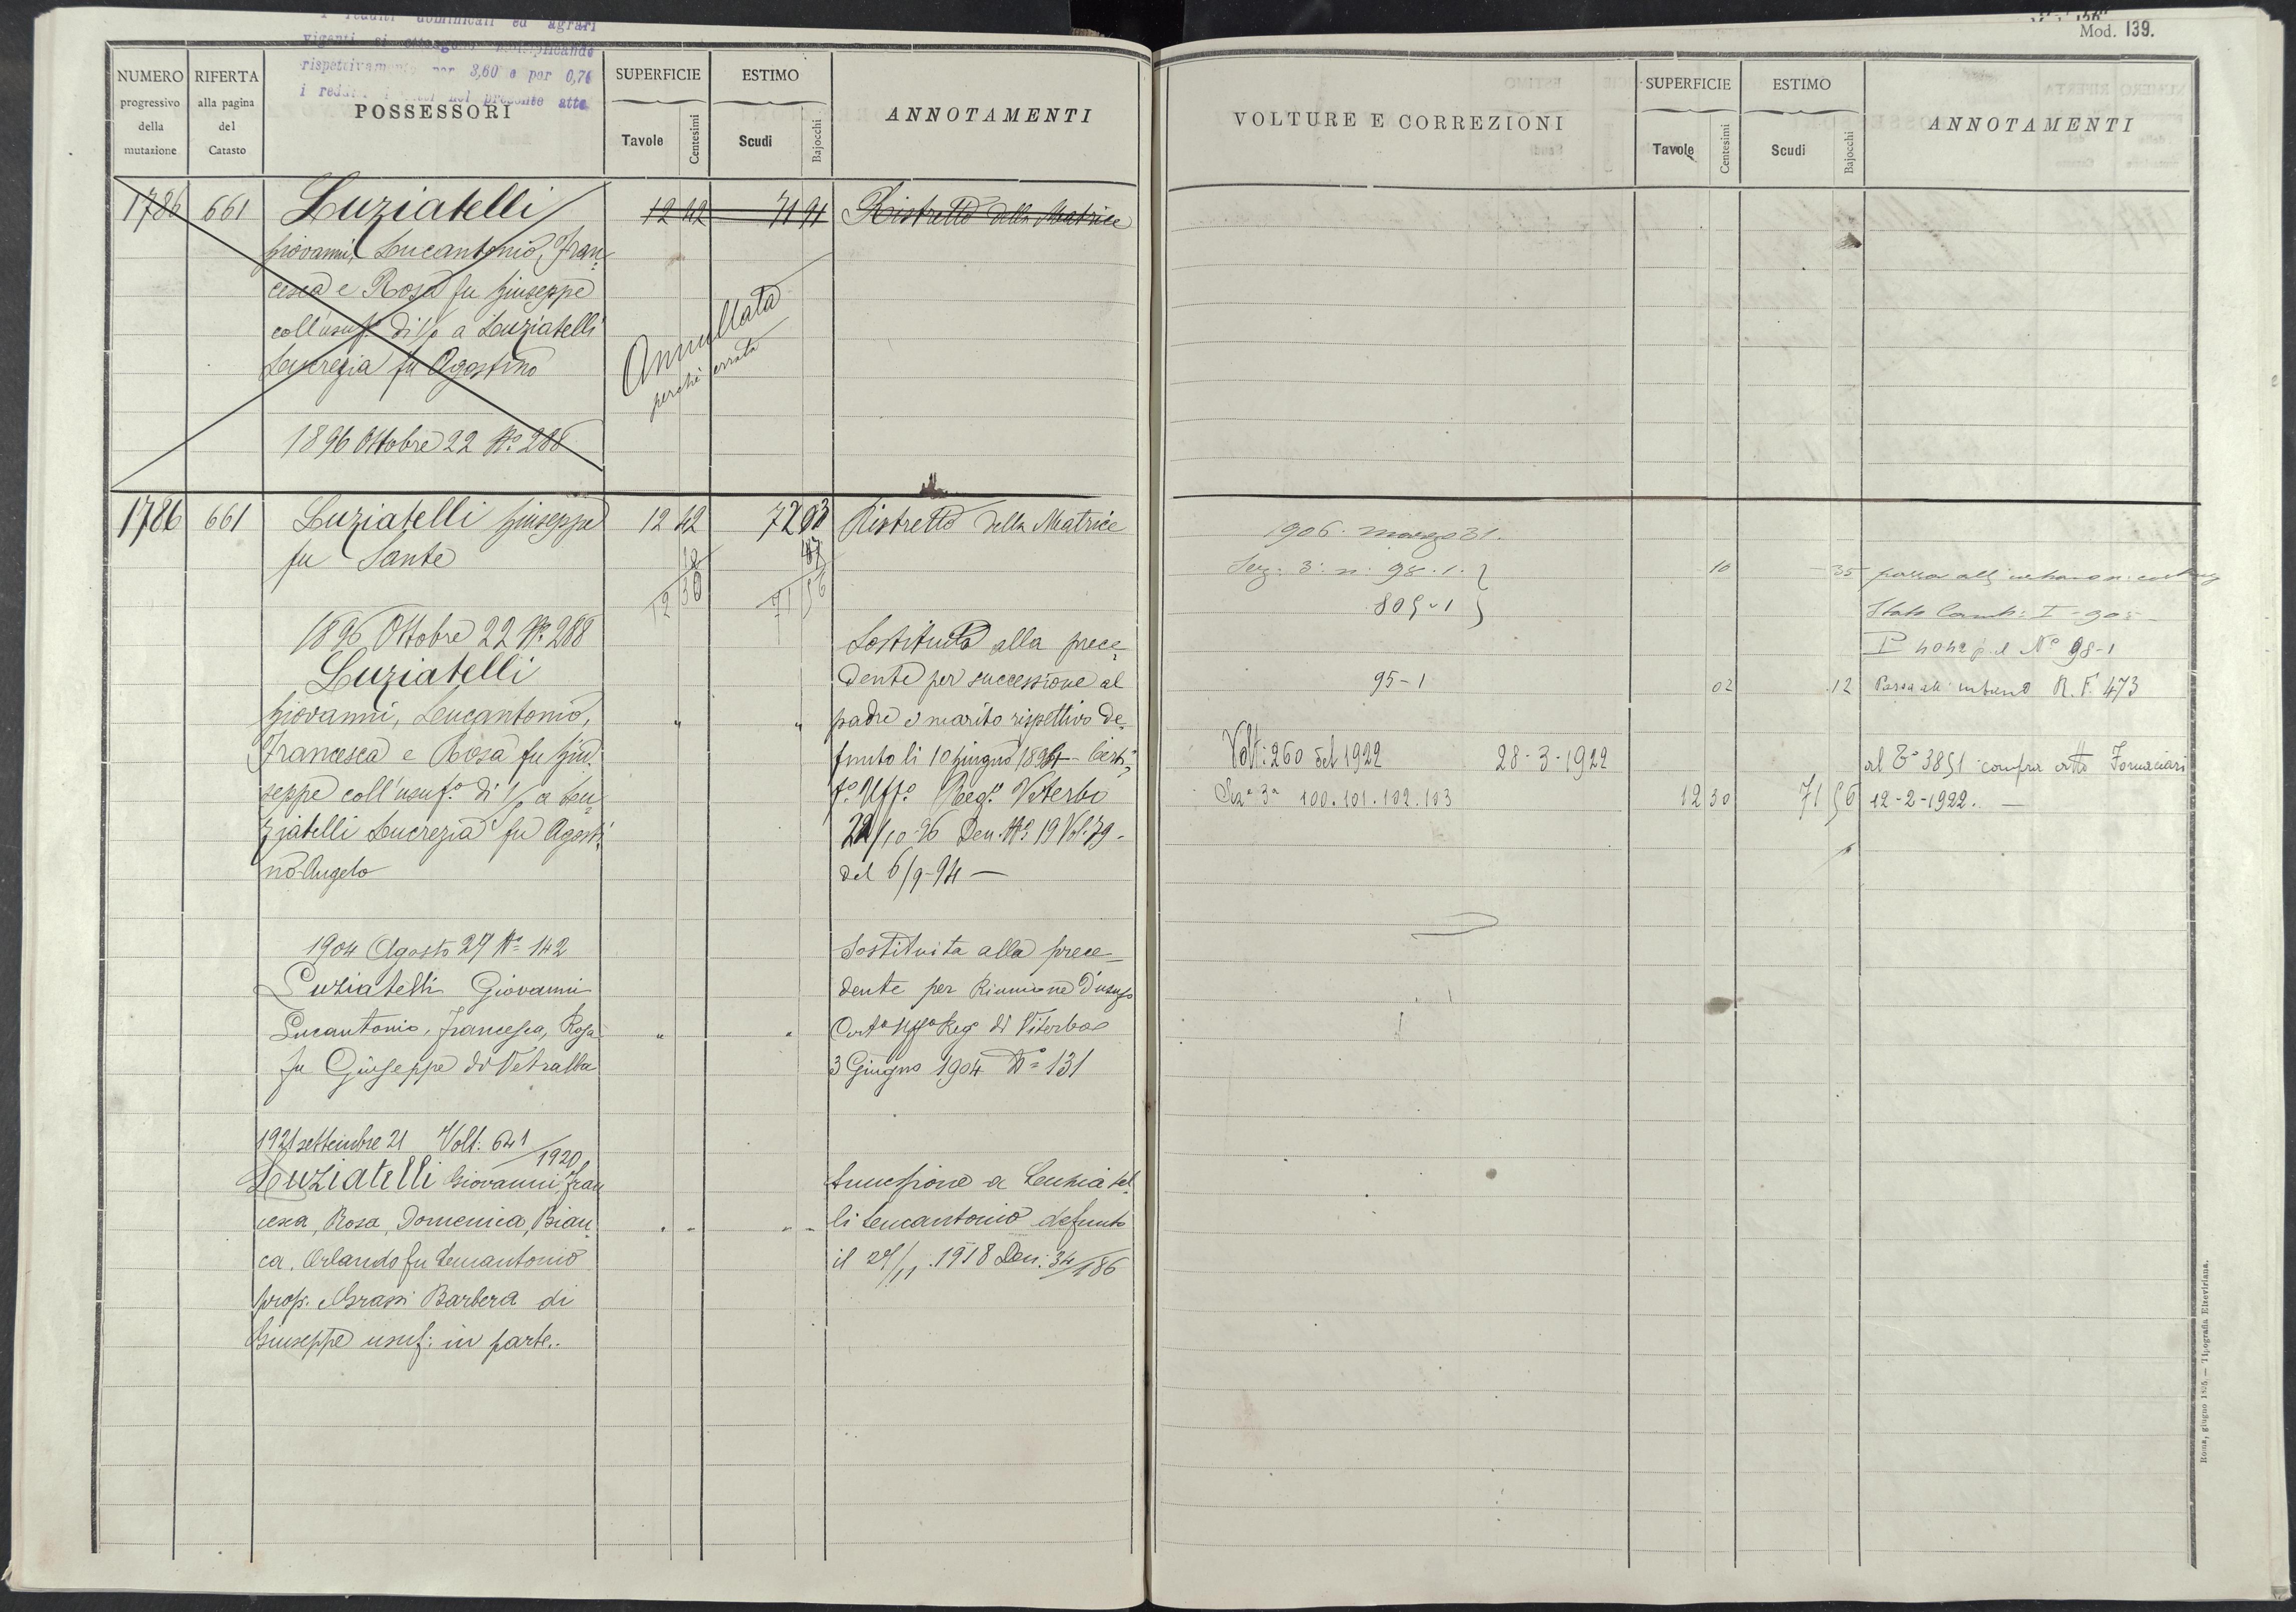 i redditi dominicali ed agrari
vigenti si ottengono moltiplicando
rispettivamente per 3,60 e per 0,76
i redditi nel presente atto
NUMERO progressivo della mutazione
RIFERTA alla pagina del Catasto
POSSESSORI
SUPERFICIE
Tavole Centesimi
ESTIMO
Scudi Bajocchi
ANNOTAMENTI
1786 661 Luziatelli 12 42 71 91 Ristretto della Matrice
Giovanni, Lucantonio, Fran-
cesca e Rosa fu Giuseppe
coll'usuf.o di a Luziatelli
Lucrezia fu Agostino
Annullata
perchè errata
1896 Ottobre 22 N.o 288
1786 661 Luziatelli Giuseppe 12 42 72 03 Ristretto della Matrice
fu Sante 12 47
12 30 71 56
1896 Ottobre 22 N.o 288
Luziatelli
Giovanni, Lucantonio,
Francesca e Rosa fu Giu-
seppe coll'usuf.o di a Lu-
ziatelli Lucrezia fu Agosti-
no Angelo
Sostituita alla prece-
dente per successione al
padre e marito rispettivo de-
funto li 10 Giugno 1894 - Certi-
f.o Uff.o Reg.o Viterbo
22/10-96 Den. N.o 19 Vol. 79 -
del 6/9-94 —
1904 Agosto 27 N.o 142
Luziatelli Giovanni
Lucantonio, Francesca, Rosa
fu Giuseppe di Vetralla
Sostituita alla prece-
dente per Riunione d'usuf.o
Cert.o Uff.o Reg.o di Viterbo
3 Giugno 1904 N.o 131
1921 settembre 21 Volt: 641/1920
Luziatelli Giovanni, Fran
cesca, Rosa, Domenica, Bian
ca, Orlando fu Lucantonio
prop. e Grassi Barbera di
Giuseppe usuf: in parte.
Successione a Luziatel-
li Lucantonio defunto
il 27/11.1918 Den: 34/186
Mod. 139.
VOLTURE E CORREZIONI
SUPERFICIE
Tavole Centesimi
ESTIMO
Scudi Bajocchi
ANNOTAMENTI
1906. Marzo 31.
Sez: 3a n: 98.1. 10 35 passa all' urbano
805-1 Stato Camb: I - 905
No 98-1
95-1 02 12 Passa all' urbano R.F. 473
Volt: 260 del 1922 28-3-1922 al To 3851 compra atto Fornaciari
Sez.e 3a 100.101.102.103 12 30 71 56 12-2-1922. —
Roma, giugno 1895. — Tipografia Elzeviriana.